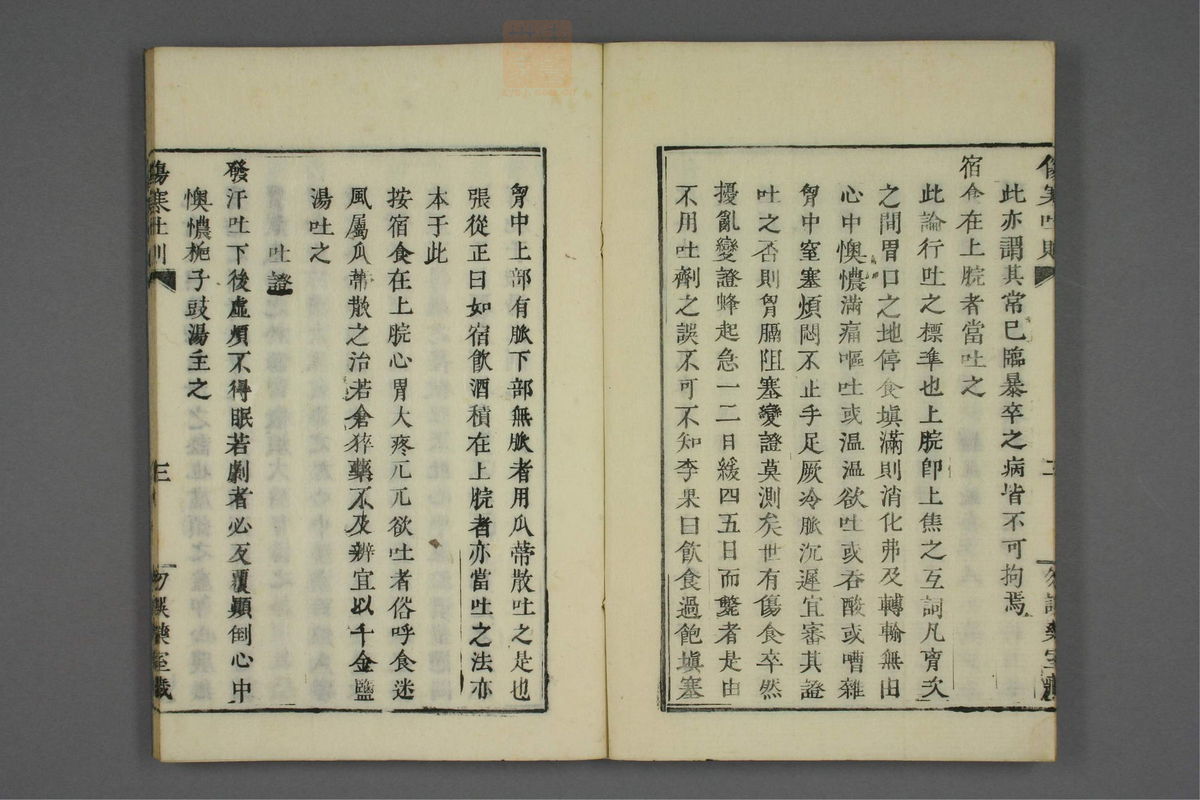 此亦謂其常已臨暴卒之病皆不可拘焉
宿食在上脘者當吐之
此論行吐之標準也上脘卽上焦之互詞凡肓夊
之間胃口之地停食塡滿則消化弗及轉輸無由
心中懊憹滿痛嘔吐或温温欲吐或吞酸或嘈雜
胷中窒塞煩悶不止手足厥冷脈沉遲宜審其證
吐之否則胷膈阻塞變證莫測矣世有傷食卒然
擾亂變證蜂起急一二日緩四五日而斃者是由
不用吐劑之誤不可不知李杲曰飮食過飽塡塞
胷中上部有脈下部無脈者用瓜蒂散吐之是也
張從正曰如宿飮酒積在上脘者亦當吐之法亦
本于此
按宿食在上脘心胃大疼兀兀欲吐者俗呼食迷
風屬瓜蒂散之治若倉猝藥不及辨宜以千金鹽
湯吐之
吐證
發汗吐下後虛煩不得眠若劇者必反覆顚倒心中
懊憹梔子豉湯主之
傷寒吐則
三